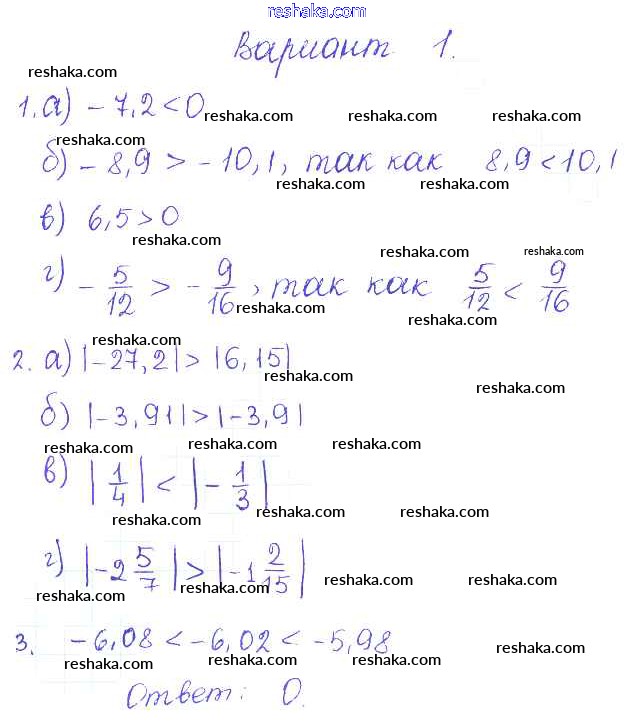 reshaka.com
Вариант 1.
reshaka.com reshaka.com
1. а) -7,2 < 0
reshaka.com reshaka.com reshaka.com
reshaka.com
б) -8,9 > -10,1, так как 8,9 < 10,1
reshaka.com reshaka.com
в) 6,5 > 0
reshaka.com reshaka.com reshaka.com
г) -5/12 > -9/16, так как 5/12 < 9/16
reshaka.com reshaka.com
2. а) |-27,2| > |6,15|
reshaka.com
б) |-3,91| > |-3,9|
reshaka.com reshaka.com reshaka.com
в) |1/4| < |-1/3|
reshaka.com reshaka.com reshaka.com
г) |-2 5/7| > |-1 2/15|
reshaka.com reshaka.com reshaka.com
reshaka.com
3. -6,08 < -6,02 < -5,98
reshaka.com reshaka.com reshaka.com
Ответ: 0.